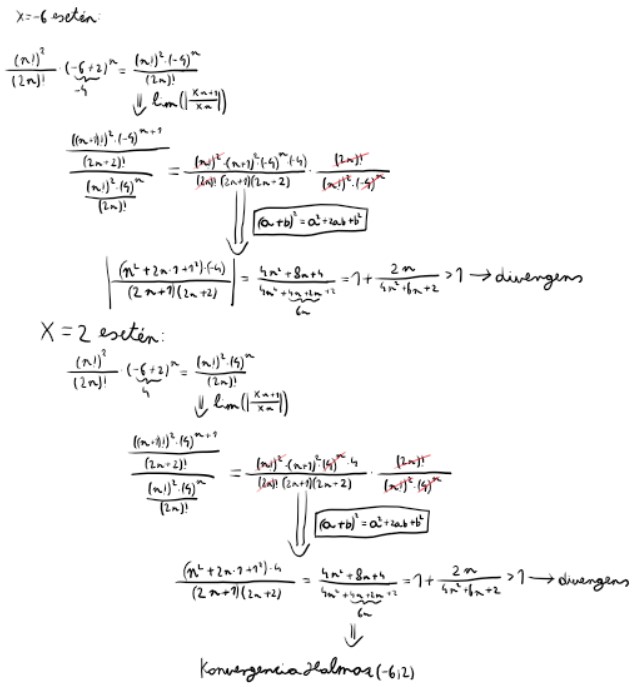 x=-6 esetén:
(n!)²/(2n)! · (-6+2)ⁿ = (n!)²·(-4)ⁿ/(2n)!
-4
⇓ lim(|xₙ₊₁/xₙ|)
(((n+1)!)²·(-4)ⁿ⁺¹/(2n+2)!)/((n!)²·(4)ⁿ/(2n)!) = (n!)²·(n+1)²·(-4)ⁿ·(-4)/(2n)!(2n+1)(2n+2) · (2n)!/(n!)²·(-4)ⁿ
(a+b)² = a²+2ab+b²
|(n²+2n·1+1²)·(-4)/(2n+1)(2n+2)| = 4n²+8n+4/4n²+4n+2n+2 = 1+2n/4n²+6n+2 >1 → divergens
6n
X = 2 esetén:
(n!)²/(2n)! · (-6+2)ⁿ = (n!)²·(4)ⁿ/(2n)!
4
⇓ lim(|xₙ₊₁/xₙ|)
(((n+1)!)²·(4)ⁿ⁺¹/(2n+2)!)/((n!)²·(4)ⁿ/(2n)!) = (n!)²·(n+1)²·(4)ⁿ·4/(2n)!(2n+1)(2n+2) · (2n)!/(n!)²·(4)ⁿ
(a+b)² = a²+2ab+b²
(n²+2n·1+1²)·4/(2n+1)(2n+2) = 4n²+8n+4/4n²+4n+2n+2 = 1+2n/4n²+6n+2 >1 → divergens
6n
⇓
Konvergencia Halmaz (-6;2)